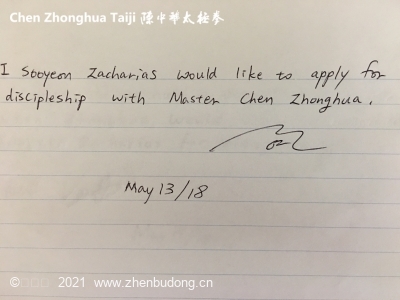 Chen Zhonghua Taiji 陳中華太極拳
I Sooyeon Zacharias would like to apply for
discipleship with Master Chen Zhonghua.
May 13/18
© 2021 www.zhenbudong.cn